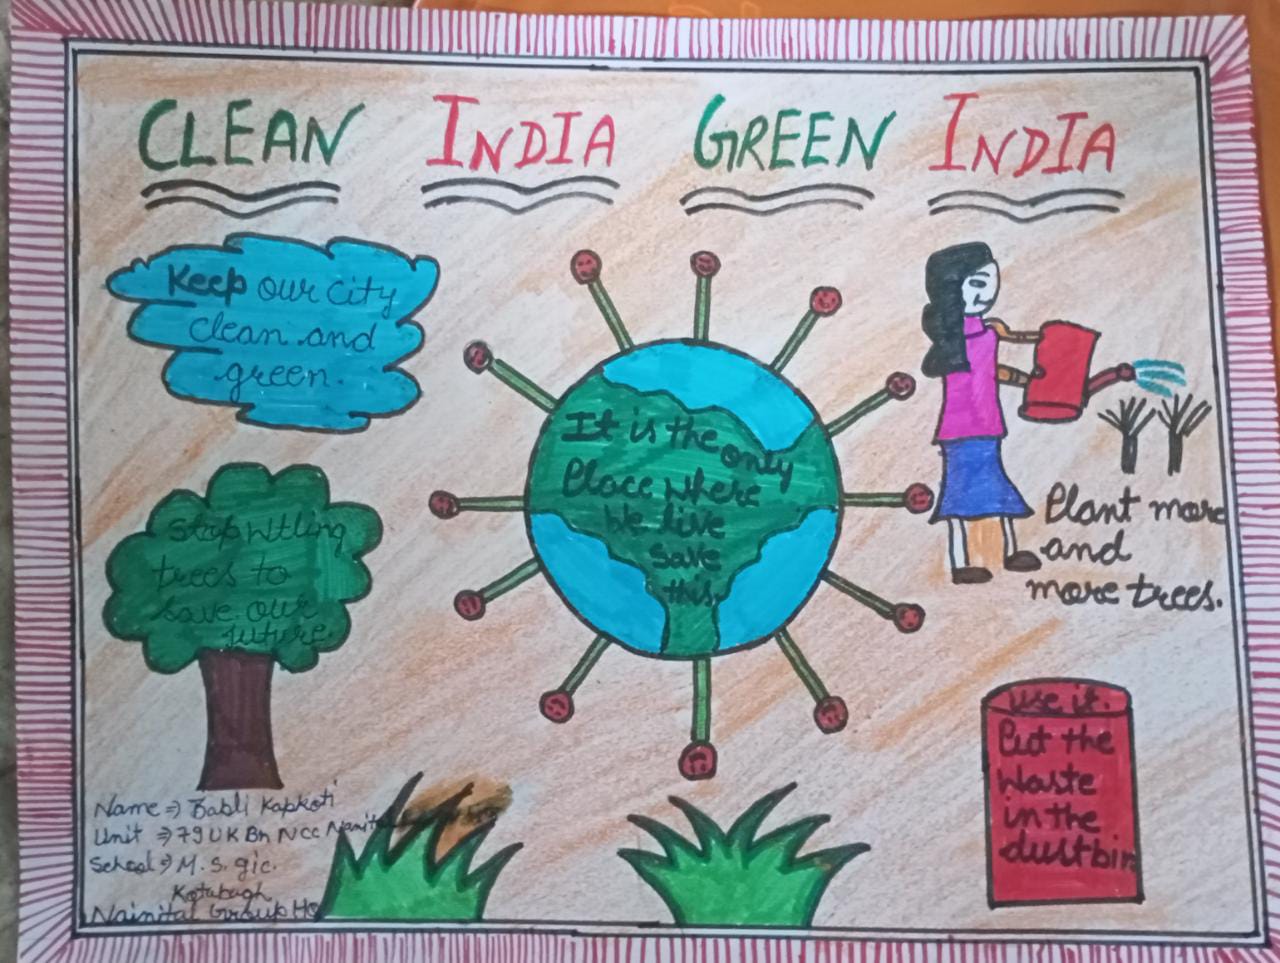 CLEAN INDIA GREEN INDIA
Keep our city
clean and
green.
It is the only
Place where
We live
save
this.
Stop wtling
trees to
save our
future.
Plant more
and
more trees.
use it.
Put the
Waste
in the
dustbin
Name ⇒ Babli Kapkoti
Unit ⇒ 79 UK Bn NCC Nainital
School ⇒ M. S. gic.
Kotabagh
Nainital Group HQ